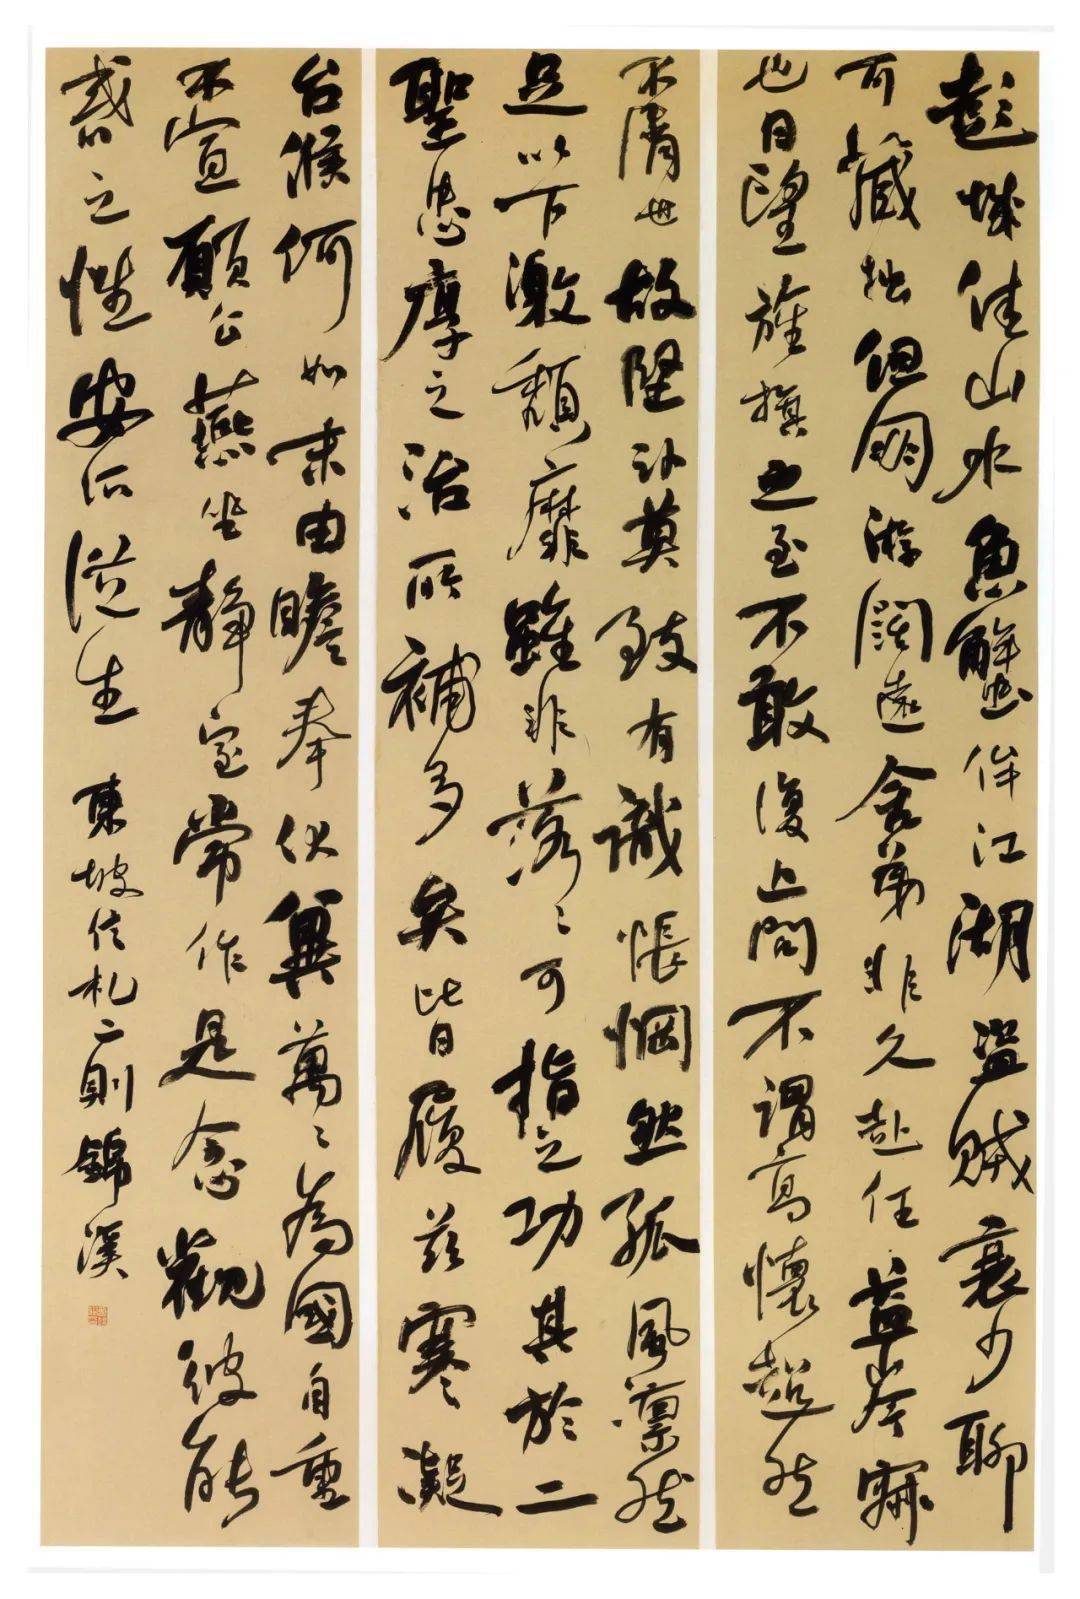 彭城佳山水魚蟹侔江湖盜賊衰少聊
可藏拙但朋游闊遠舍弟非久赴任益岑寂
也日望旌旗之至不敢復上問不謂高懷超然
不屑世故堅臥莫致有識悵惘然孤風凛然
足以下激頹靡雖非落々可指之功其於二
聖忠厚之治所補多矣比日履兹寒凝
台候何如未由瞻奉伏冀萬々為國自重
不宣願公燕坐靜室常作是念觀彼能
惑之性安所從生 東坡信札二則錦溪